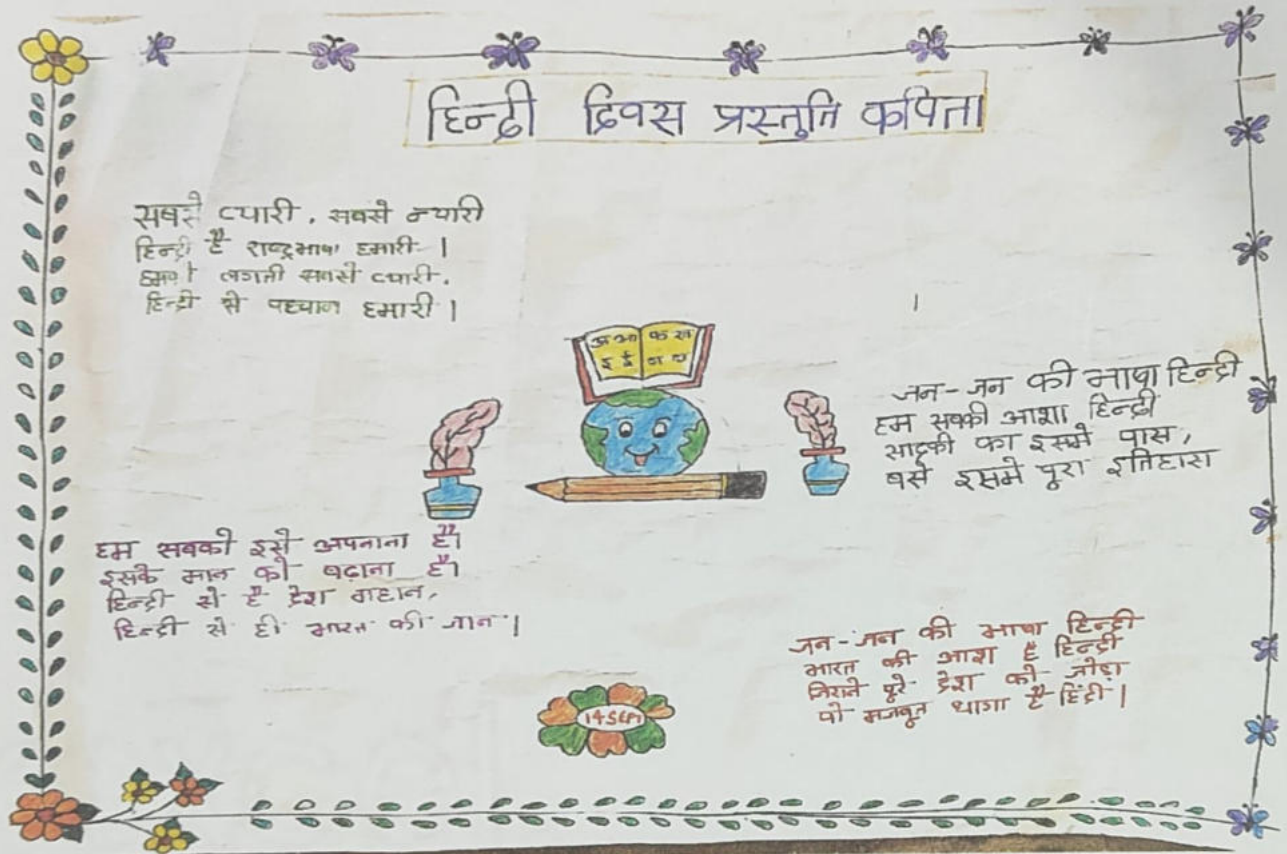 हिन्दी दिवस प्रस्तुति कविता
सबसे प्यारी, सबसे न्यारी
हिन्दी है राष्ट्रभाषा हमारी।
हमको लगती सबसे प्यारी,
हिन्दी से पहचान हमारी।
अ आ क ख
इ ई ग घ
जन-जन की भाषा हिन्दी
हम सबकी आशा हिन्दी
सादकी का इसमे वास,
बसे इसमे पूरा इतिहास
हम सबको इसे अपनाना है।
इसके मान को बढ़ाना है।
हिन्दी से है देश महान,
हिन्दी से ही भारत की जान।
जन-जन की भाषा हिन्दी
भारत की आश है हिन्दी
जिसने पूरे देश को जोड़ा
वो मजबूत धागा है हिंदी।
14 SEPT